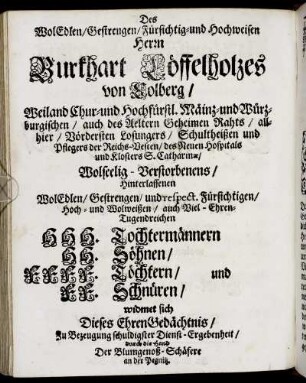 Des
WolEdlen/Gestrengen/Fürsichtig-und Hochweisen
Herrn
Burkhart Löffelholzes
von Colberg/
Weiland Chur-und Hochfürstl. Mäinz-und Würz-
burgischen/ auch des Aeltern Geheimen Rahts/ all-
hier/ Vördersten Losungers/ Schultheißen und
Pflegers der Reichs-Vesten/ des Neuen Hospitals
und Klosters S. Catharinæ/
Wolseelig-Verstorbenens/
Hinterlassenen
WolEdlen/ Gestrengen/ und respect. Fürsichtigen/
Hoch-und Wolweißen/ auch Viel-Ehren-
Tugendreichen
HHH. Tochtermännern
HH. Söhnen/
FFFF. Töchtern/ und
FF. Schnüren/
widmet sich
Dieses EhrenGedächtnis/
Zu Bezeugung schuldigster Dienst-Ergebenheit/
durch die Hand
Der Blumgenoß-Schäfere
an der Pegnitz.